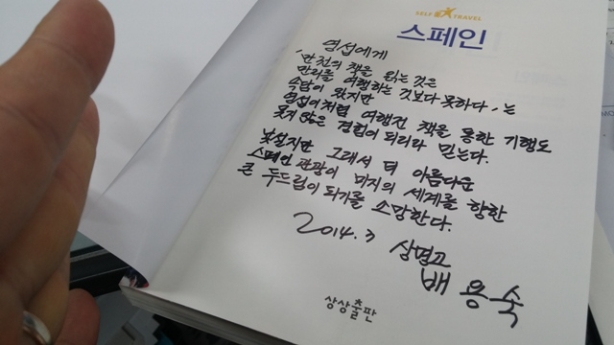 SELF TRAVEL
스페인
영섭에게
'만 권의 책을 읽는 것은
만리를 여행하는 것보다 못하다'는
속담이 있지만
영섭이처럼 여행전 책을 통한 기행도
못지 않은 경험이 되리라 믿는다.
낯설지만 그래서 더 아름다운
스페인 관광이 미지의 세계를 향한
큰 두드림이 되기를 소망한다.
2014. 7 상명고
배용숙
상상출판